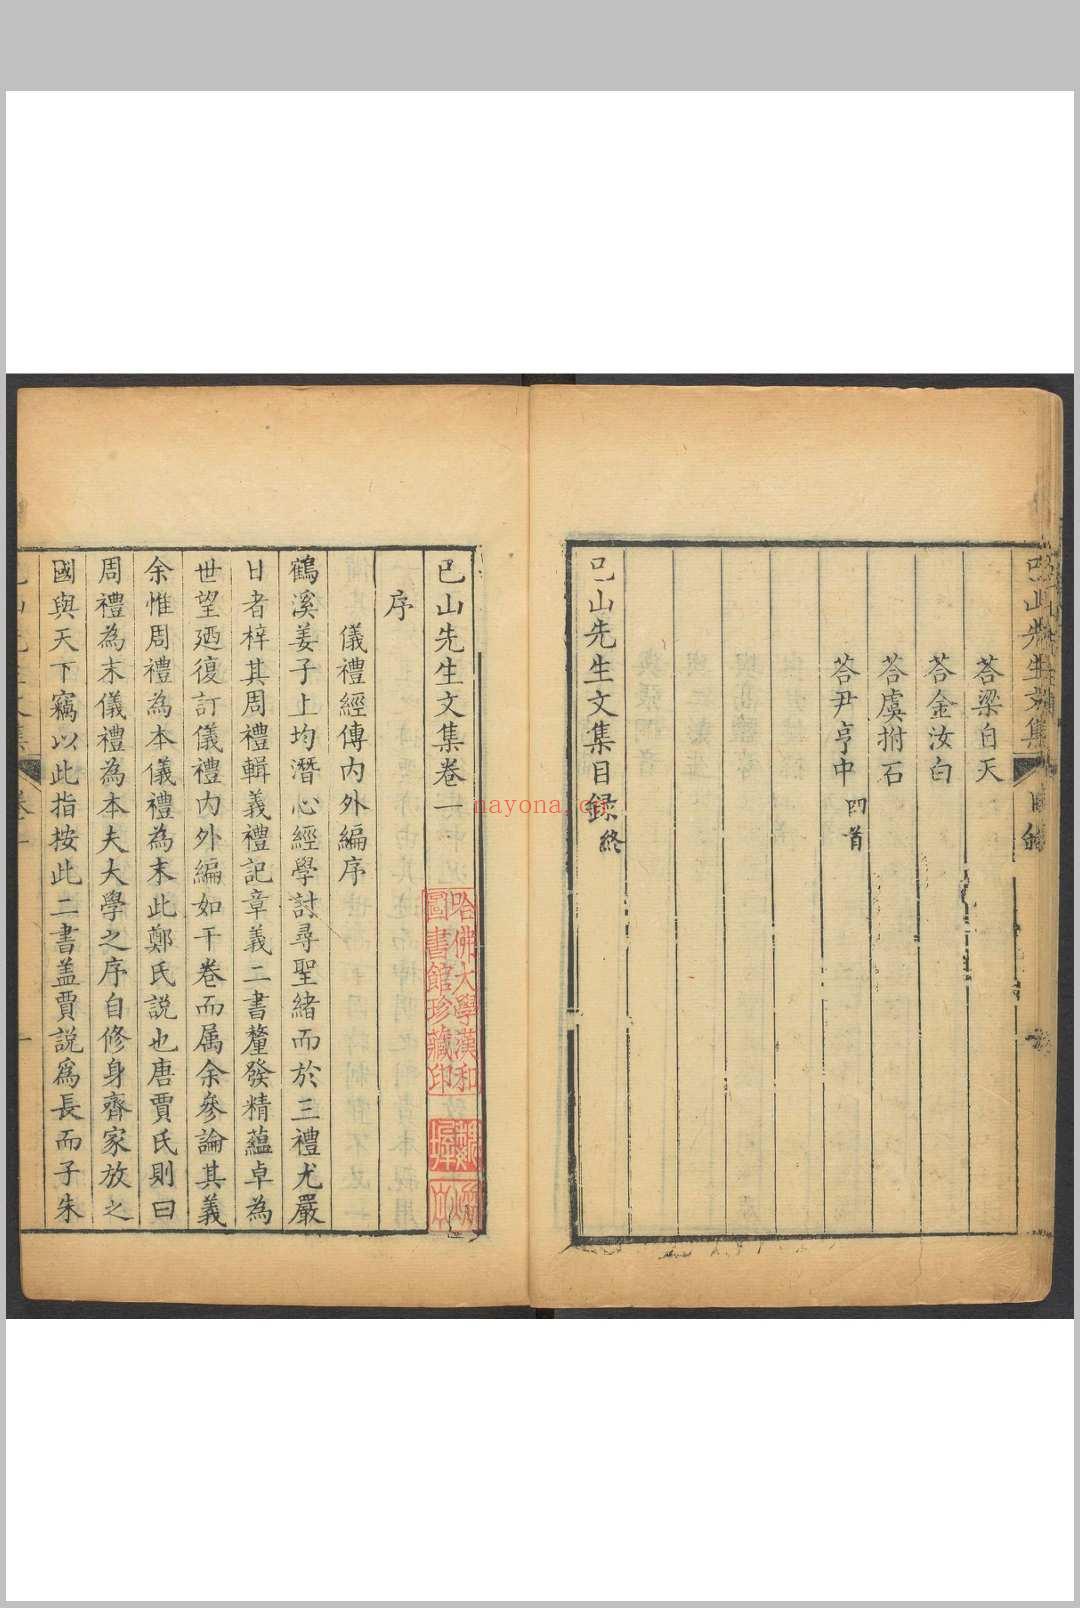 荅梁自天
荅金汝白
荅虞拊石
荅尹亨中 四首
巴山先生文集目録終
巴山先生文集卷一
序
儀禮經傳内外編序
鶴溪姜子上均潛心經學討尋聖緒而於三禮尤嚴
日者梓其周禮輯義禮記章義二書釐發精蘊卓為
世望廼復訂儀禮内外編如干卷而属余叅論其義
余惟周禮為本儀禮為末此鄭氏説也唐賈氏則曰
周禮為末儀禮為本夫大學之序自修身齊家放之
國與天下竊以此指按此二書盖賈説爲長而子朱
哈佛大學漢和
圖書館珍藏印
nayona.cn